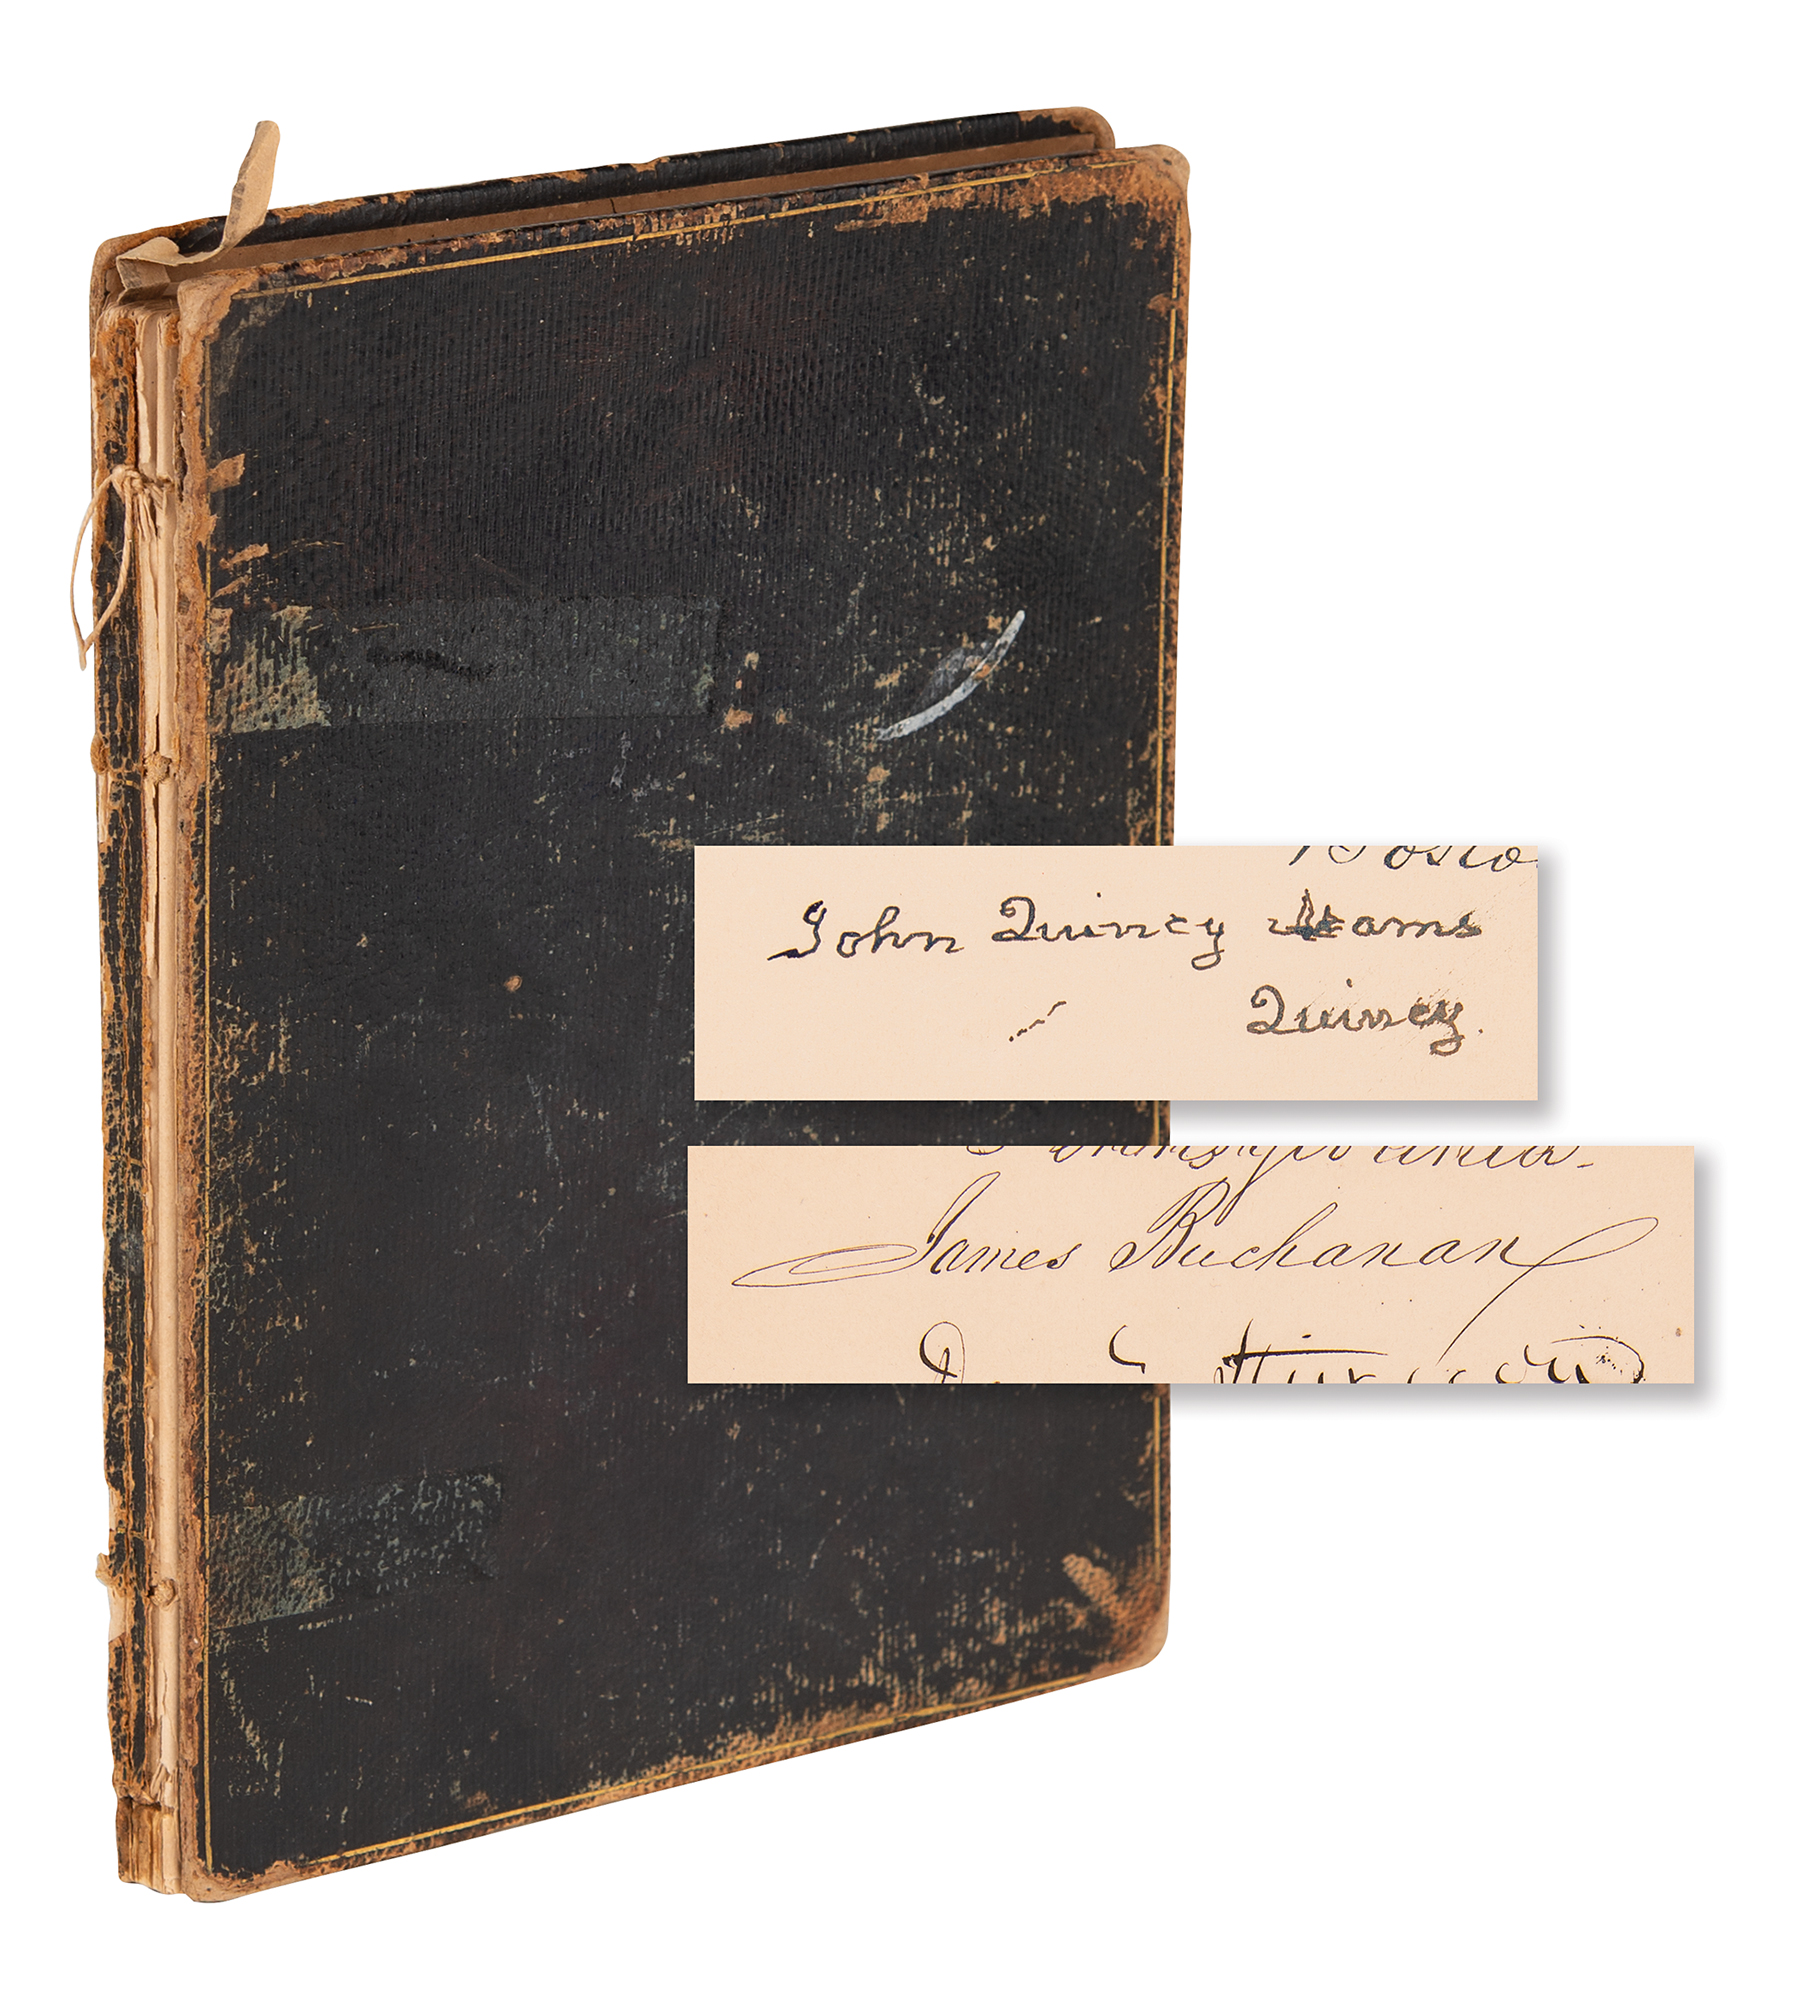 John Quincy Adams
Quincy.
James Buchanan